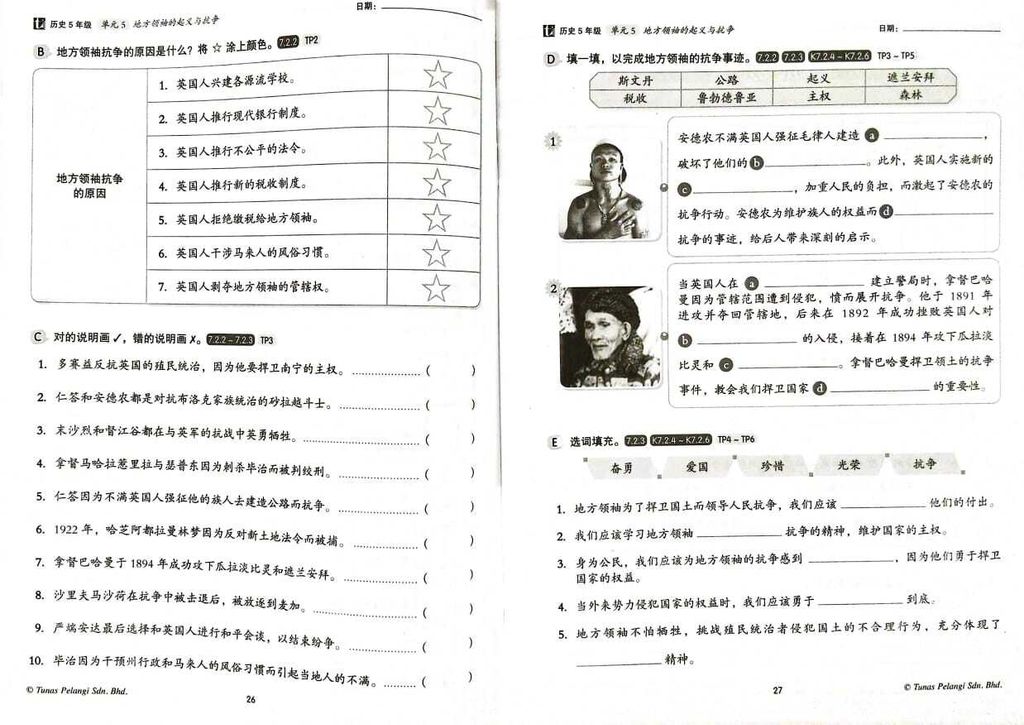 日期：
历史5年级 单元5 地方领袖的起义与抗争
B 地方领袖抗争的原因是什么？将 ☆ 涂上颜色。 7.2.2 TP2
地方领袖抗争
的原因
1. 英国人兴建各源流学校。
2. 英国人推行现代银行制度。
3. 英国人推行不公平的法令。
4. 英国人推行新的税收制度。
5. 英国人拒绝缴税给地方领袖。
6. 英国人干涉马来人的风俗习惯。
7. 英国人剥夺地方领袖的管辖权。
C 对的说明画 ✓，错的说明画 ✗。 7.2.2 – 7.2.3 TP3
1. 多赛益反抗英国的殖民统治，因为他要捍卫南宁的主权。 (    )
2. 仁答和安德农都是对抗布洛克家族统治的砂拉越斗士。 (    )
3. 末沙烈和督江谷都在与英军的抗战中英勇牺牲。 (    )
4. 拿督马哈拉惹里拉与瑟普东因为刺杀毕治而被判绞刑。 (    )
5. 仁答因为不满英国人强征他的族人去建造公路而抗争。 (    )
6. 1922 年，哈芝阿都拉曼林梦因为反对新土地法令而被捕。 (    )
7. 拿督巴哈曼于 1894 年成功攻下瓜拉淡比灵和遮兰安拜。 (    )
8. 沙里夫马沙荷在抗争中被击退后，被放逐到麦加。 (    )
9. 严端安达最后选择和英国人进行和平会谈，以结束纷争。 (    )
10. 毕治因为干预州行政和马来人的风俗习惯而引起当地人的不满。 (    )
© Tunas Pelangi Sdn. Bhd.
26
历史5年级 单元5 地方领袖的起义与抗争
日期：
D 填一填，以完成地方领袖的抗争事迹。 7.2.2 7.2.3 K7.2.4 – K7.2.6 TP3 – TP5
斯文丹 公路 起义 遮兰安拜
税收 鲁勃德鲁亚 主权 森林
1
安德农不满英国人强征毛律人建造 a ，
破坏了他们的 b 。此外，英国人实施新的
c ，加重人民的负担，而激起了安德农的
抗争行动。安德农为维护族人的权益而 d
抗争的事迹，给后人带来深刻的启示。
2
当英国人在 a 建立警局时，拿督巴哈
曼因为管辖范围遭到侵犯，愤而展开抗争。他于 1891 年
进攻并夺回管辖地，后来在 1892 年成功挫败英国人对
b 的入侵，接着在 1894 年攻下瓜拉淡
比灵和 c 。拿督巴哈曼捍卫领土的抗争
事件，教会我们捍卫国家 d 的重要性。
E 选词填充。 7.2.3 K7.2.4 – K7.2.6 TP4 – TP6
奋勇 爱国 珍惜 光荣 抗争
1. 地方领袖为了捍卫国土而领导人民抗争，我们应该 他们的付出。
2. 我们应该学习地方领袖 抗争的精神，维护国家的主权。
3. 身为公民，我们应该为地方领袖的抗争感到 ，因为他们勇于捍卫
国家的权益。
4. 当外来势力侵犯国家的权益时，我们应该勇于 到底。
5. 地方领袖不怕牺牲，挑战殖民统治者侵犯国土的不合理行为，充分体现了
精神。
27
© Tunas Pelangi Sdn. Bhd.